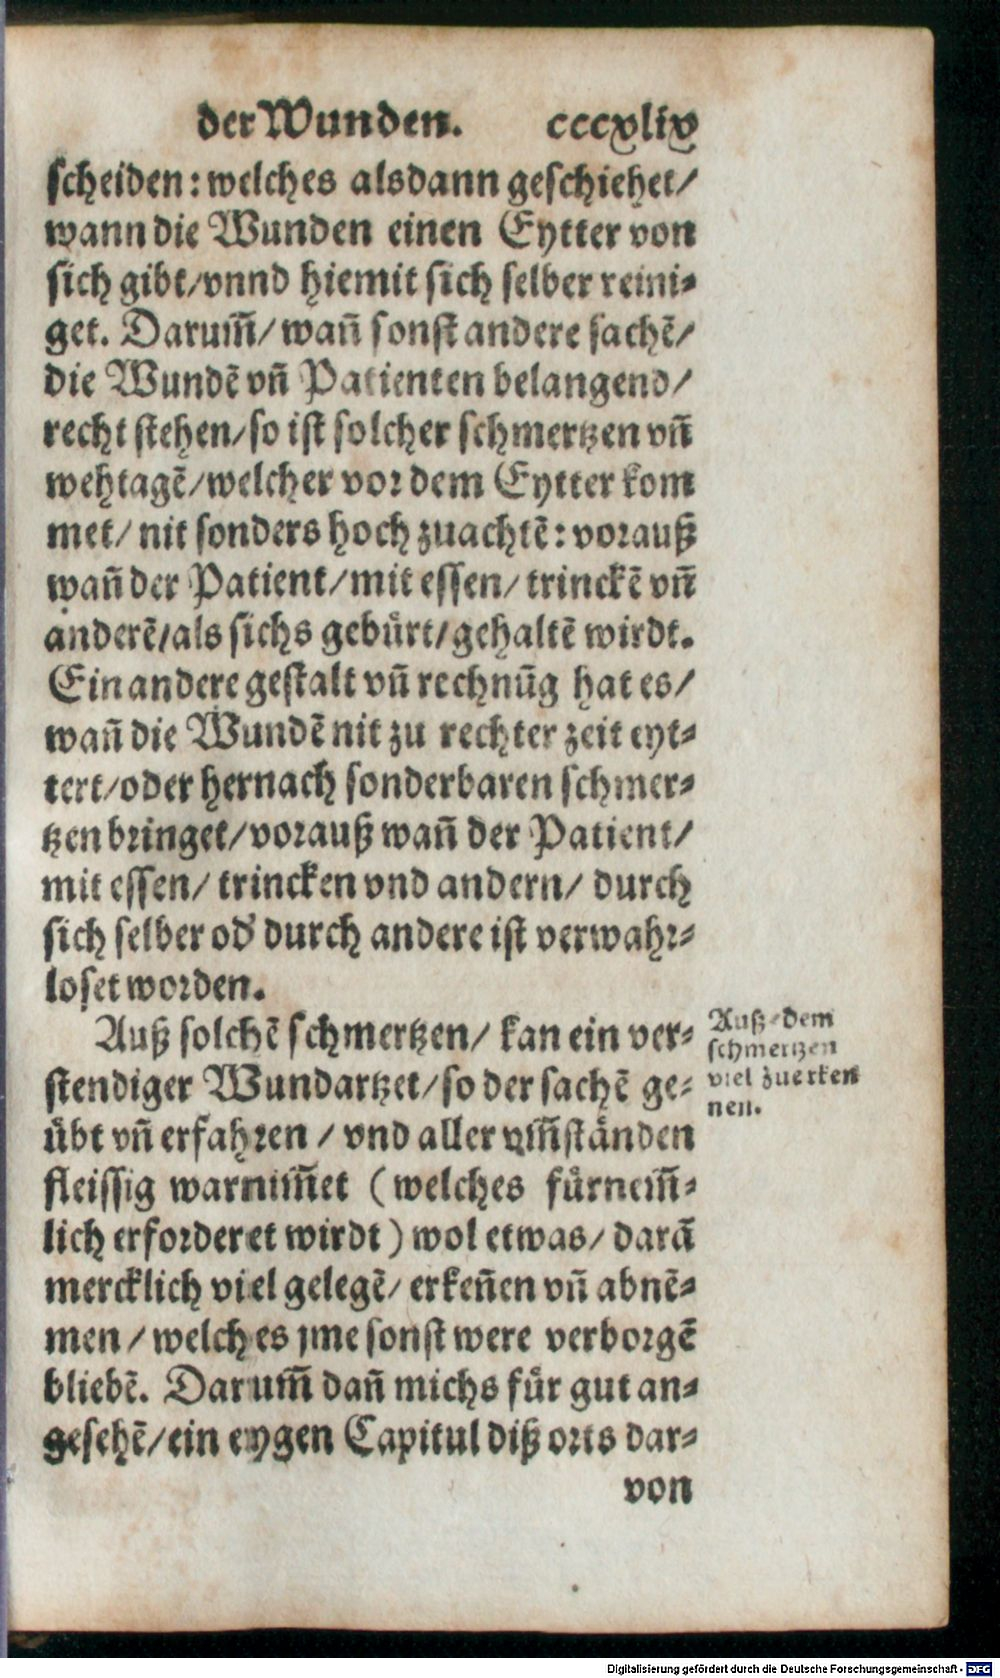 der Wunden. cccxlix
scheiden: welches alsdann geschiehet/
wann die Wunden einen Eytter von
sich gibt/ vnnd hiemit sich selber reini⸗
get. Darum̃/ wañ sonst andere sachẽ/
die Wundẽ vñ Patienten belangend/
recht stehen/ so ist solcher schmertzen vñ
wehtagẽ/ welcher vor dem Eytter kom
met/ nit sonders hoch zuachtẽ: vorauß
wañ der Patient/ mit essen/ trinckẽ vñ
anderẽ/ als sichs gebürt/ gehaltẽ wirdt.
Ein andere gestalt vñ rechnũg hat es/
wañ die Wundẽ nit zu rechter zeit eyt⸗
tert/ oder hernach sonderbaren schmer⸗
tzen bringet/ vorauß wañ der Patient/
mit essen/ trincken vnd andern/ durch
sich selber od' durch andere ist verwahr⸗
loset worden.
Auß solchẽ schmertzen/ kan ein ver⸗
stendiger Wundartzet/ so der sachẽ ge⸗
übt vñ erfahren / vnd aller vm̃ständen
fleissig warnim̃et (welches fürnem̃⸗
lich erforderet wirdt) wol etwas/ darã
mercklich viel gelegẽ/ erkeñen vñ abnẽ⸗
men / welches jme sonst were verborgẽ
bliebẽ. Darum̃ dañ michs für gut an⸗
gesehẽ/ ein eygen Capitul diß orts dar⸗
von
Auß dem
schmertzen
viel zuerken
nen.
Digitalisierung gefördert durch die Deutsche Forschungsgemeinschaft - DFG